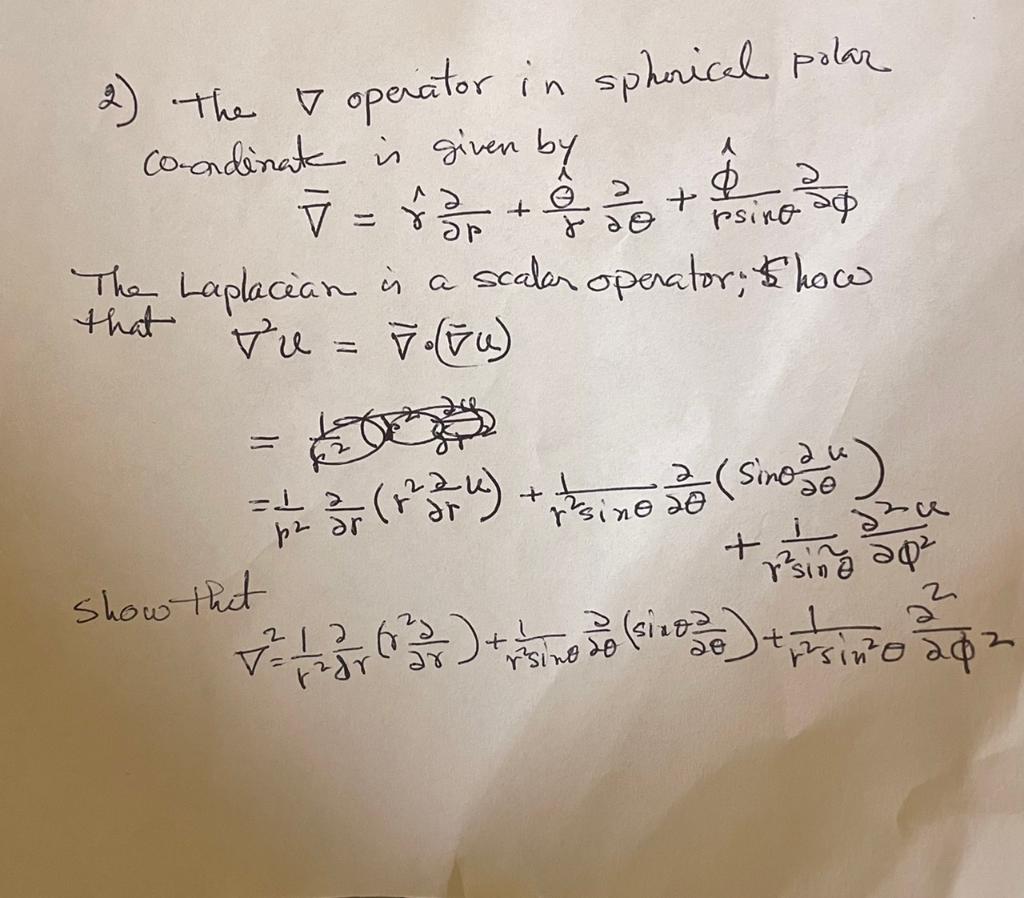 2) The ∇ operator in spherical polar
co-ordinate is given by
∇̄ = r̂ ∂/∂r + θ̂/r ∂/∂θ + ϕ̂/(r sinθ) ∂/∂ϕ
The Laplacian is a scalar operator; Show
that ∇²u = ∇̄·(∇̄u)
=
= 1/r² ∂/∂r (r² ∂u/∂r) + 1/(r² sinθ) ∂/∂θ (Sinθ ∂u/∂θ)
+ 1/(r² sin²θ) ∂²u/∂ϕ²
Show that
∇² = 1/r² ∂/∂r (r² ∂/∂r) + 1/(r² sinθ) ∂/∂θ (sinθ ∂/∂θ) + 1/(r² sin²θ) ∂²/∂ϕ²